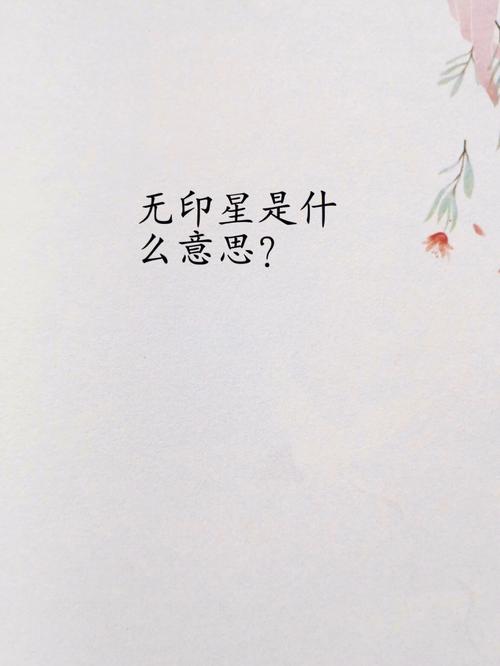 无印星是什
么意思?